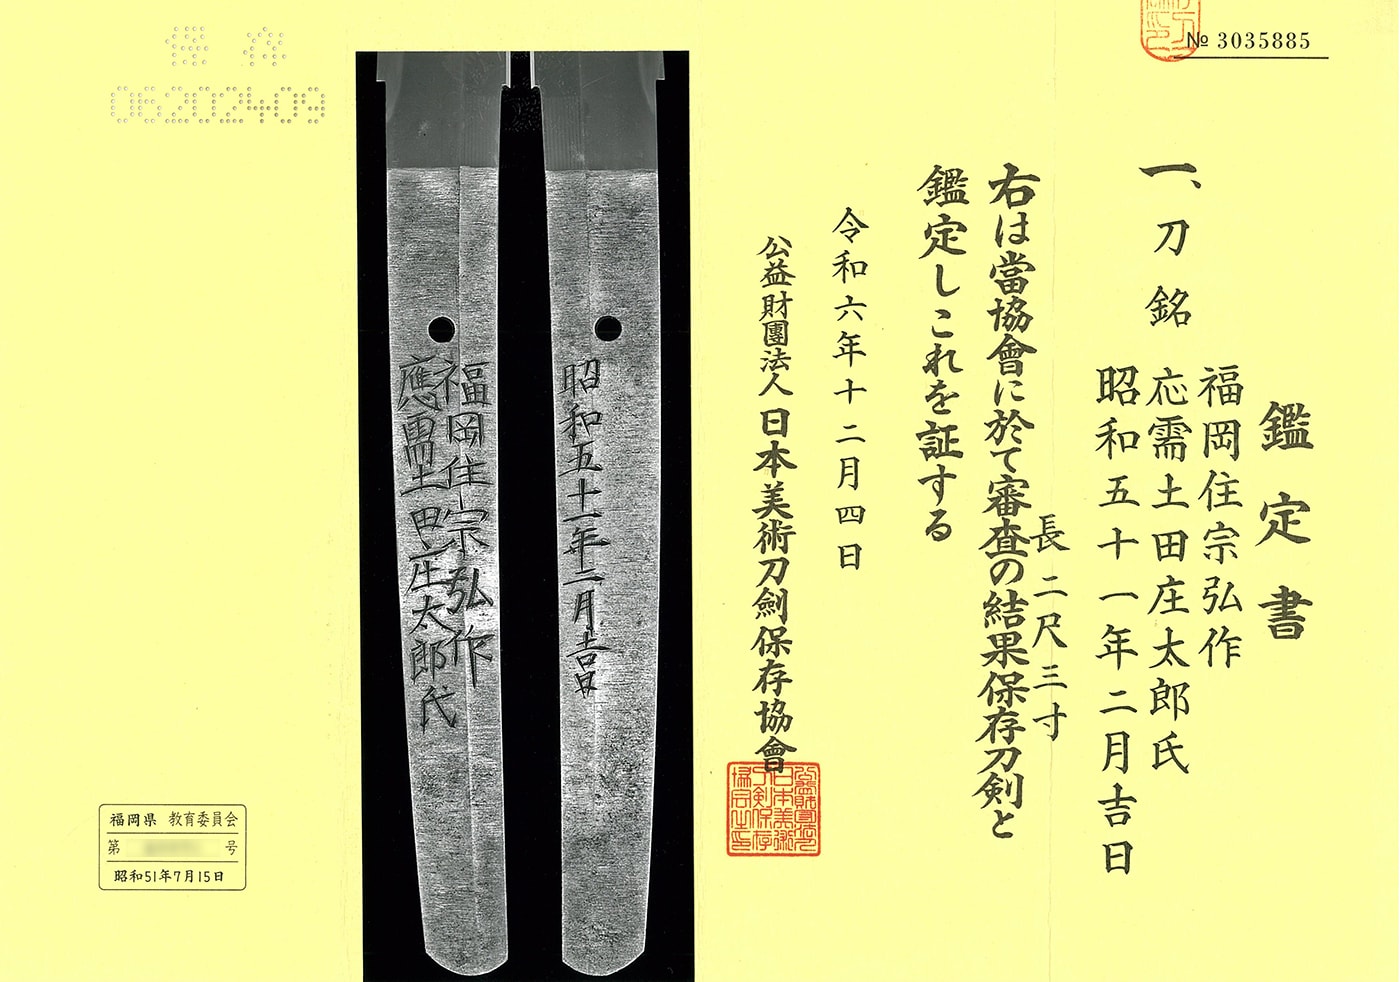 № 3035885
鑑定書
一、刀 銘
福岡住宗弘作
応需土田庄太郎氏
昭和五十一年二月吉日
長 二尺三寸
右は當協會に於て審査の結果保存刀剣と
鑑定しこれを証する
令和六年十二月四日
公益財團法人 日本美術刀劍保存協會
昭和五十一年二月吉日
福岡住宗弘作
應需土田庄太郎氏
保存
06202409
福岡県 教育委員会
第 号
昭和51年7月15日